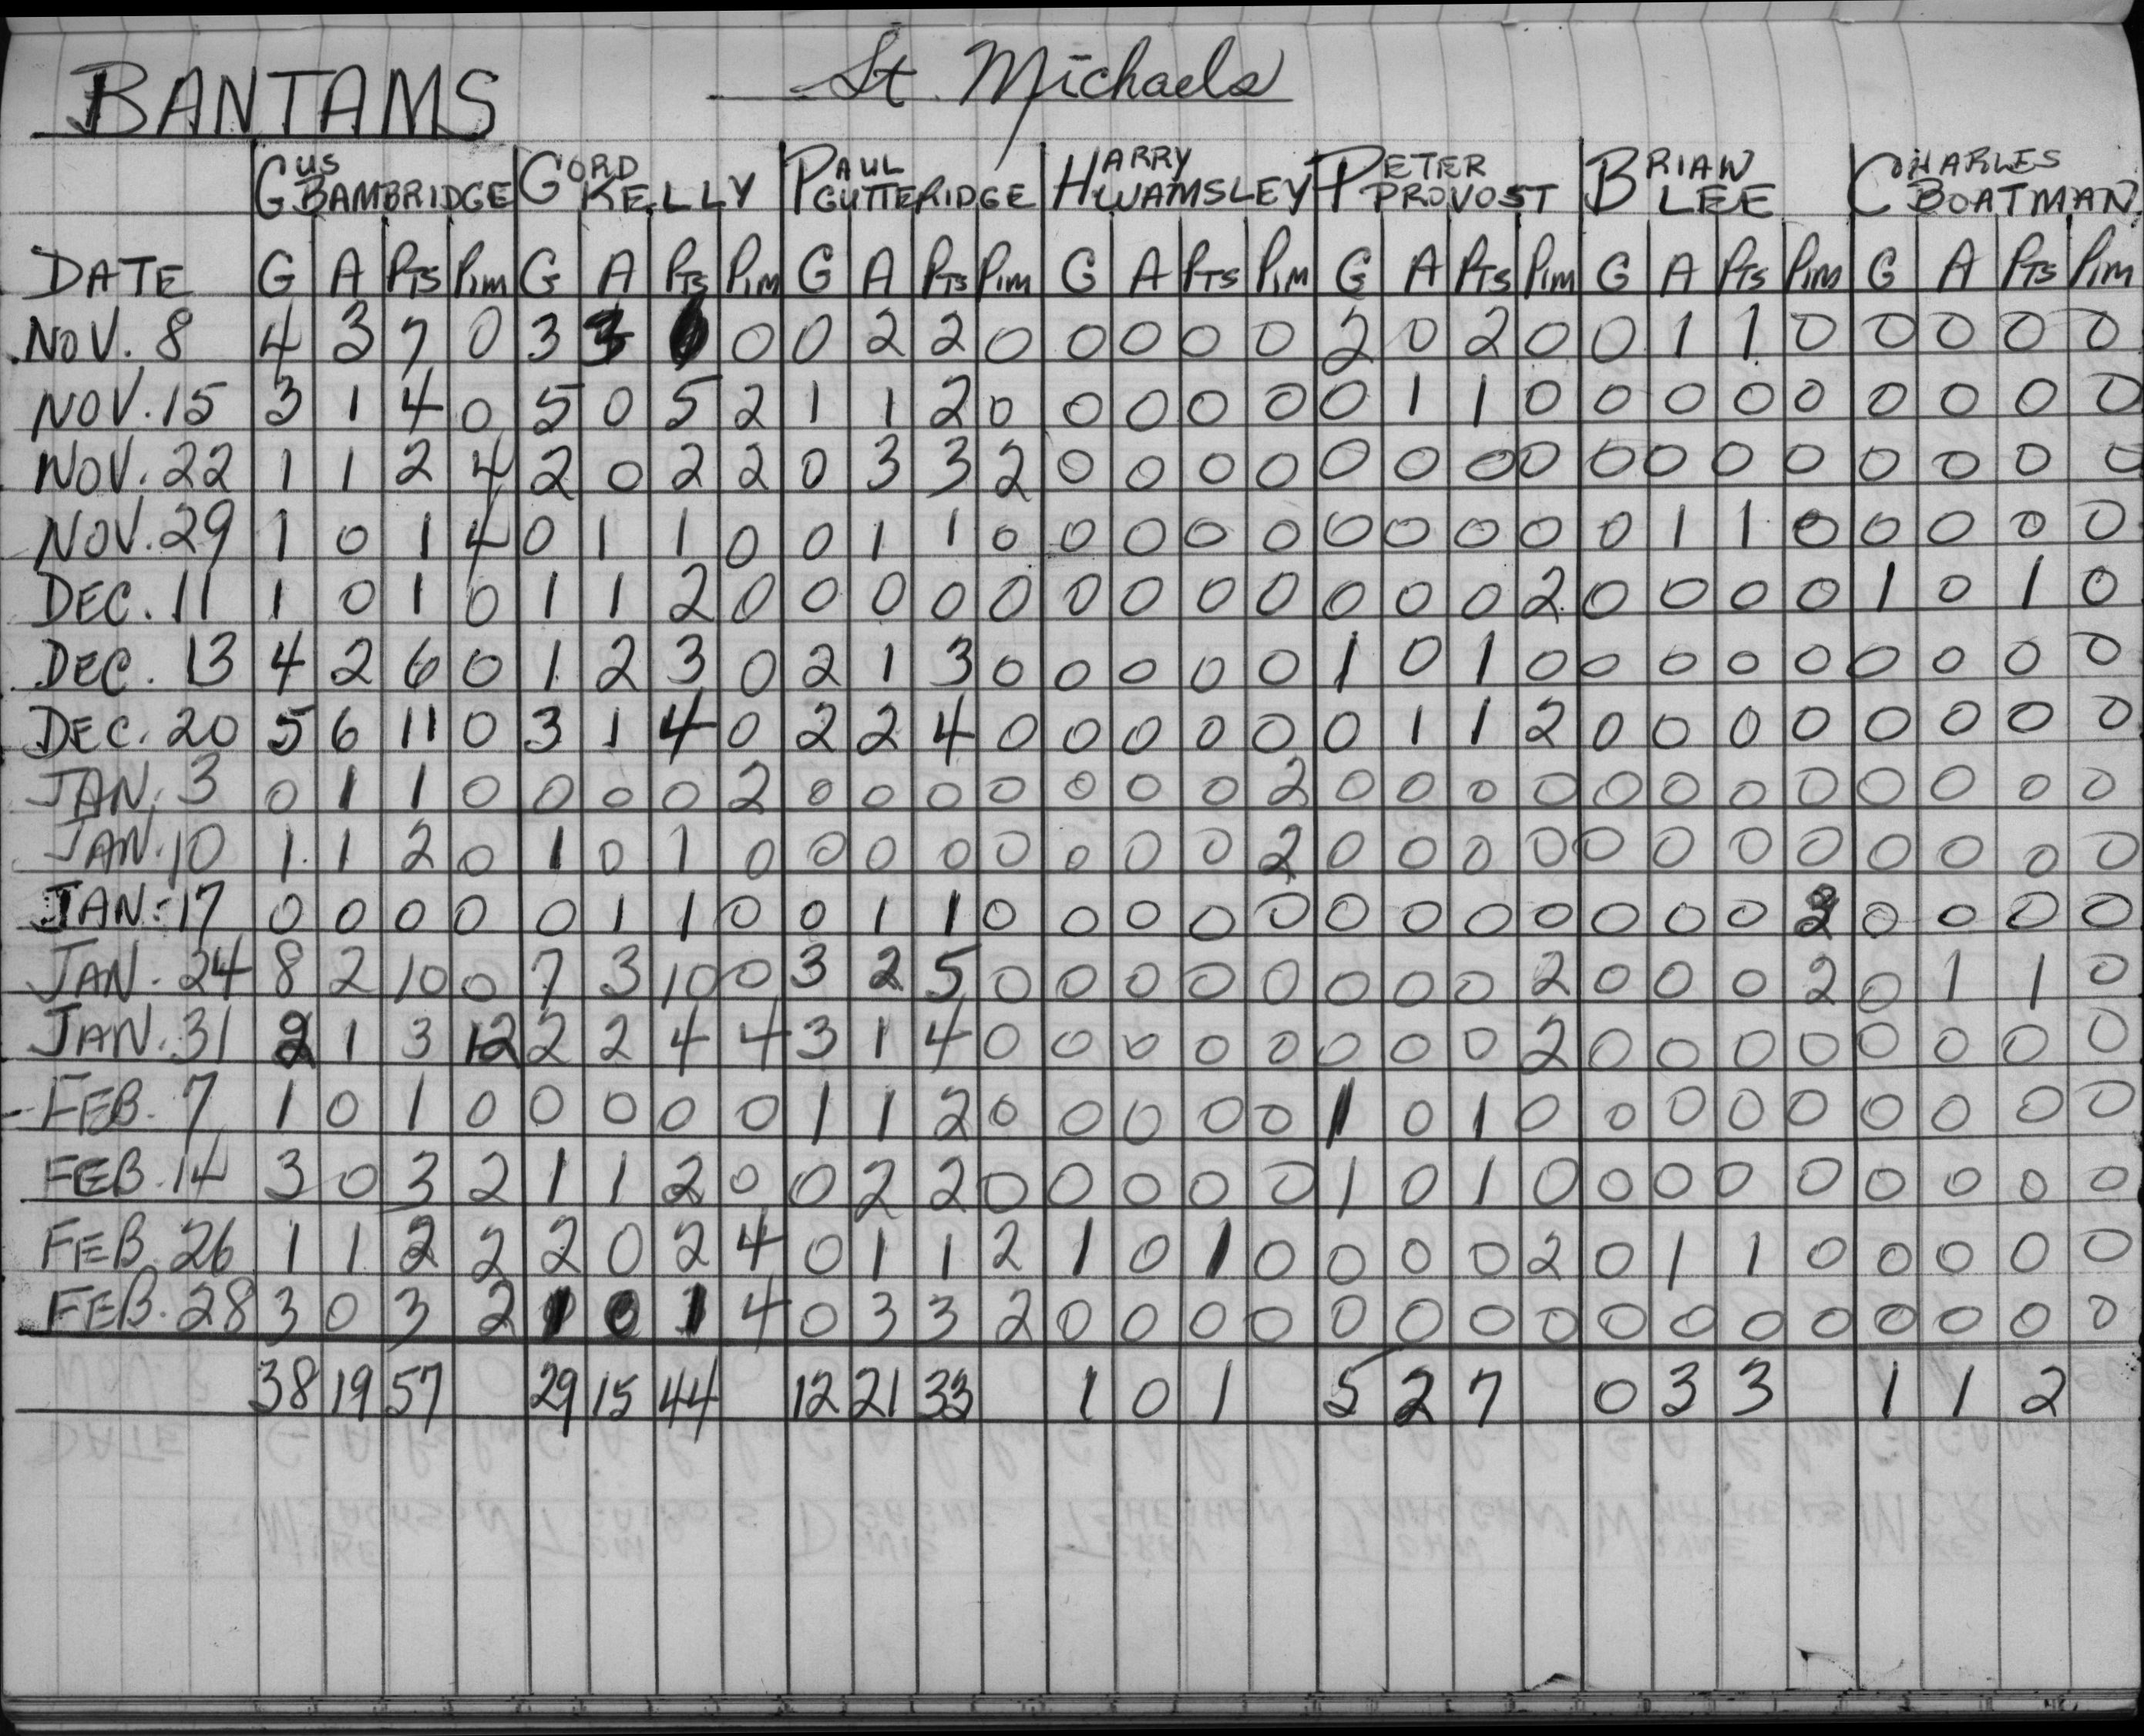 BANTAMS St. Michaels
GUS BAMBRIDGE GORD KELLY PAUL GUTTERIDGE HARRY WAMSLEY PETER PROVOST BRIAN LEE CHARLES BOATMAN
DATE G A PTS PIM G A PTS PIM G A PTS PIM G A PTS PIM G A PTS PIM G A PTS PIM G A PTS PIM
NOV. 8 4 3 7 0 3 3 6 0 0 2 2 0 0 0 0 0 2 0 2 0 0 1 1 0 0 0 0 0
NOV. 15 3 1 4 0 5 0 5 2 1 1 2 0 0 0 0 0 0 1 1 0 0 0 0 0 0 0 0 0
NOV. 22 1 1 2 4 2 0 2 2 0 3 3 2 0 0 0 0 0 0 0 0 0 0 0 0 0 0 0 0
NOV. 29 1 0 1 4 0 1 1 0 0 1 1 0 0 0 0 0 0 0 0 0 0 1 1 0 0 0 0 0
DEC. 11 1 0 1 0 1 1 2 0 0 0 0 0 0 0 0 0 0 0 0 2 0 0 0 0 1 0 1 0
DEC. 13 4 2 6 0 1 2 3 0 2 1 3 0 0 0 0 0 1 0 1 0 0 0 0 0 0 0 0 0
DEC. 20 5 6 11 0 3 1 4 0 2 2 4 0 0 0 0 0 0 1 1 2 0 0 0 0 0 0 0 0
JAN. 3 0 1 1 0 0 0 0 2 0 0 0 0 0 0 0 2 0 0 0 0 0 0 0 0 0 0 0 0
JAN. 10 1 1 2 0 1 0 1 0 0 0 0 0 0 0 0 2 0 0 0 0 0 0 0 0 0 0 0 0
JAN. 17 0 0 0 0 0 1 1 0 0 1 1 0 0 0 0 0 0 0 0 0 0 0 0 2 0 0 0 0
JAN. 24 8 2 10 0 7 3 10 0 3 2 5 0 0 0 0 0 0 0 0 2 0 0 0 2 0 1 1 0
JAN. 31 2 1 3 12 2 2 4 4 3 1 4 0 0 0 0 0 0 0 0 2 0 0 0 0 0 0 0 0
FEB. 7 1 0 1 0 0 0 0 0 1 1 2 0 0 0 0 0 1 0 1 0 0 0 0 0 0 0 0 0
FEB. 14 3 0 3 2 1 1 2 0 0 2 2 0 0 0 0 0 1 0 1 0 0 0 0 0 0 0 0 0
FEB. 26 1 1 2 2 2 0 2 4 0 1 1 2 1 0 1 0 0 0 0 2 0 1 1 0 0 0 0 0
FEB. 28 3 0 3 2 1 0 1 4 0 3 3 2 0 0 0 0 0 0 0 0 0 0 0 0 0 0 0 0
38 19 57 29 15 44 12 21 33 1 0 1 5 2 7 0 3 3 1 1 2